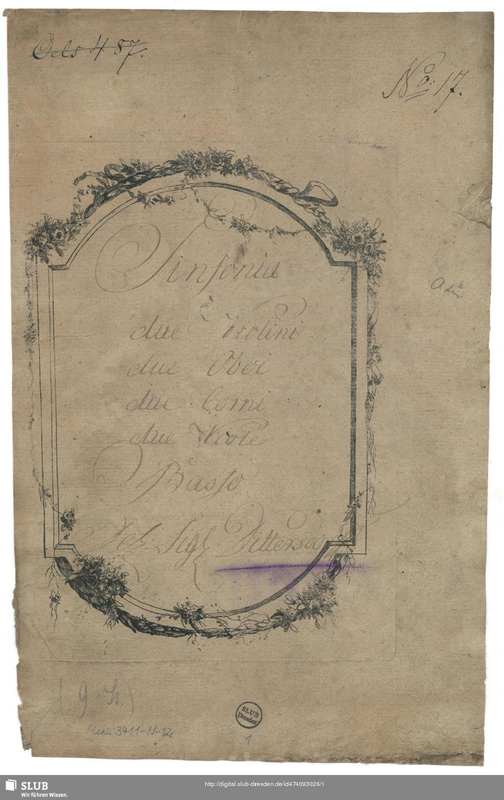 Oels 487.
No. 17.
Sinfonia
à
due Violini
due Oboi
due Corni
due Viole
e
Basso
Del Sigl Dittersdorf
(9 St.)
Mus. 3411-N-12e
SLUB
Dresden
1
SLUB
Wir führen Wissen.
http://digital.slub-dresden.de/id474093026/1